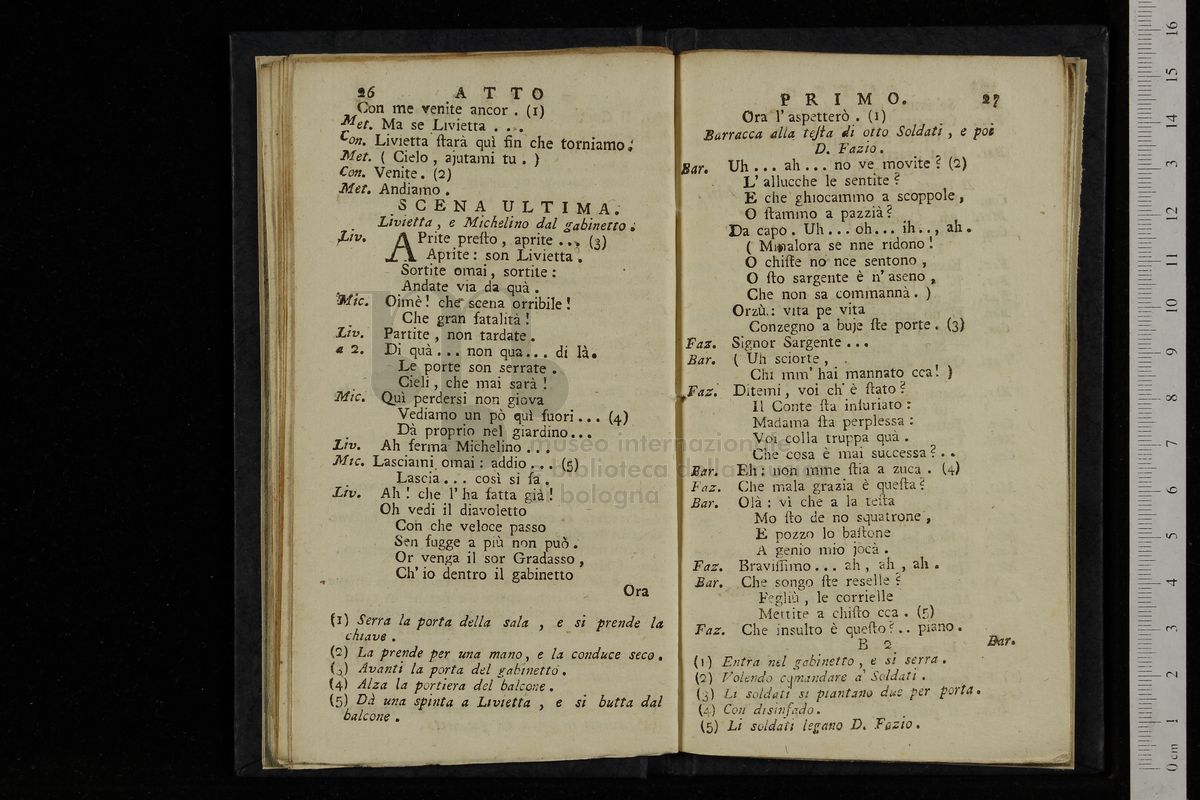 26 ATTO
Con me venite ancor . (1)
Met. Ma se Livietta . . .
Con. Livietta ſtarà quì fin che torniamo.
Met. ( Cielo , ajutami tu . )
Con. Venite. (2)
Met. Andiamo .
SCENA ULTIMA.
Livietta , e Michelino dal gabinetto .
Liv. APrite preſto , aprite ... (3)
Aprite : son Livietta .
Sortite omai, sortite :
Andate via da quà .
Mic. Oimè ! che scena orribile !
Che gran fatalità !
Liv. Partite , non tardate .
a 2. Di quà ... non qua ... di là.
Le porte son serrate .
Cieli , che mai sarà !
Mic. Quì perdersi non giova
Vediamo un pò quì fuori ... (4)
Dà proprio nel giardino ...
Liv. Ah ferma Michelino ...
Mic. Lasciami omai : addio ... (5)
Lascia ... così si fa .
Liv. Ah ! che l' ha fatta già !
Oh vedi il diavoletto
Con che veloce passo
Sen fugge a più non può .
Or venga il sor Gradasso ,
Ch' io dentro il gabinetto
Ora
(1) Serra la porta della sala , e si prende la
chiave .
(2) La prende per una mano, e la conduce seco.
(3) Avanti la porta del gabinetto .
(4) Alza la portiera del balcone .
(5) Dà una spinta a Livietta , e si butta dal
balcone .
PRIMO. 27
Ora l' aspetterò . (1)
Barracca alla teſta di otto Soldati , e poi
D. Fazio .
Bar. Uh ... ah ... no ve movite ? (2)
L' allucche le sentite ?
E che ghiocammo a scoppole ,
O ſtammo a pazzià ?
Da capo. Uh ... oh ... ih .. , ah .
( Mmalora se nne ridono !
O chiſte no nce sentono ,
O ſto sargente è n' aseno ,
Che non sa commannà . )
Orzù : vita pe vita
Conzegno a buje ſte porte . (3)
Faz. Signor Sargente ...
Bar. ( Uh sciorte ,
Chi mm' hai mannato cca ! )
Faz. Ditemi , voi ch' è ſtato ?
Il Conte ſta infuriato :
Madama ſta perplessa :
Voi colla truppa quà .
Che cosa è mai successa ? . .
Bar. Eh : non mme ſtia a zuca . (4)
Faz. Che mala grazia è queſta ?
Bar. Olà : vi che a la teſta
Mo ſto de no squatrone ,
E pozzo lo baſtone
A genio mio jocà .
Faz. Braviſſimo ... ah , ah , ah .
Bar. Che songo ſte reselle ?
Fegliù , le corrielle
Mettite a chiſto cca . (5)
Faz. Che insulto è queſto ? .. piano .
B 2 Bar.
(1) Entra nel gabinetto , e si serra .
(2) Volendo comandare a' Soldati .
(3) Li soldati si piantano due per porta .
(4) Con disinfado .
(5) Li soldati legano D. Fazio .
museo internazionale
biblioteca della musica
bologna
0 cm 1 2 3 4 5 6 7 8 9 10 11 12 13 14 15 16